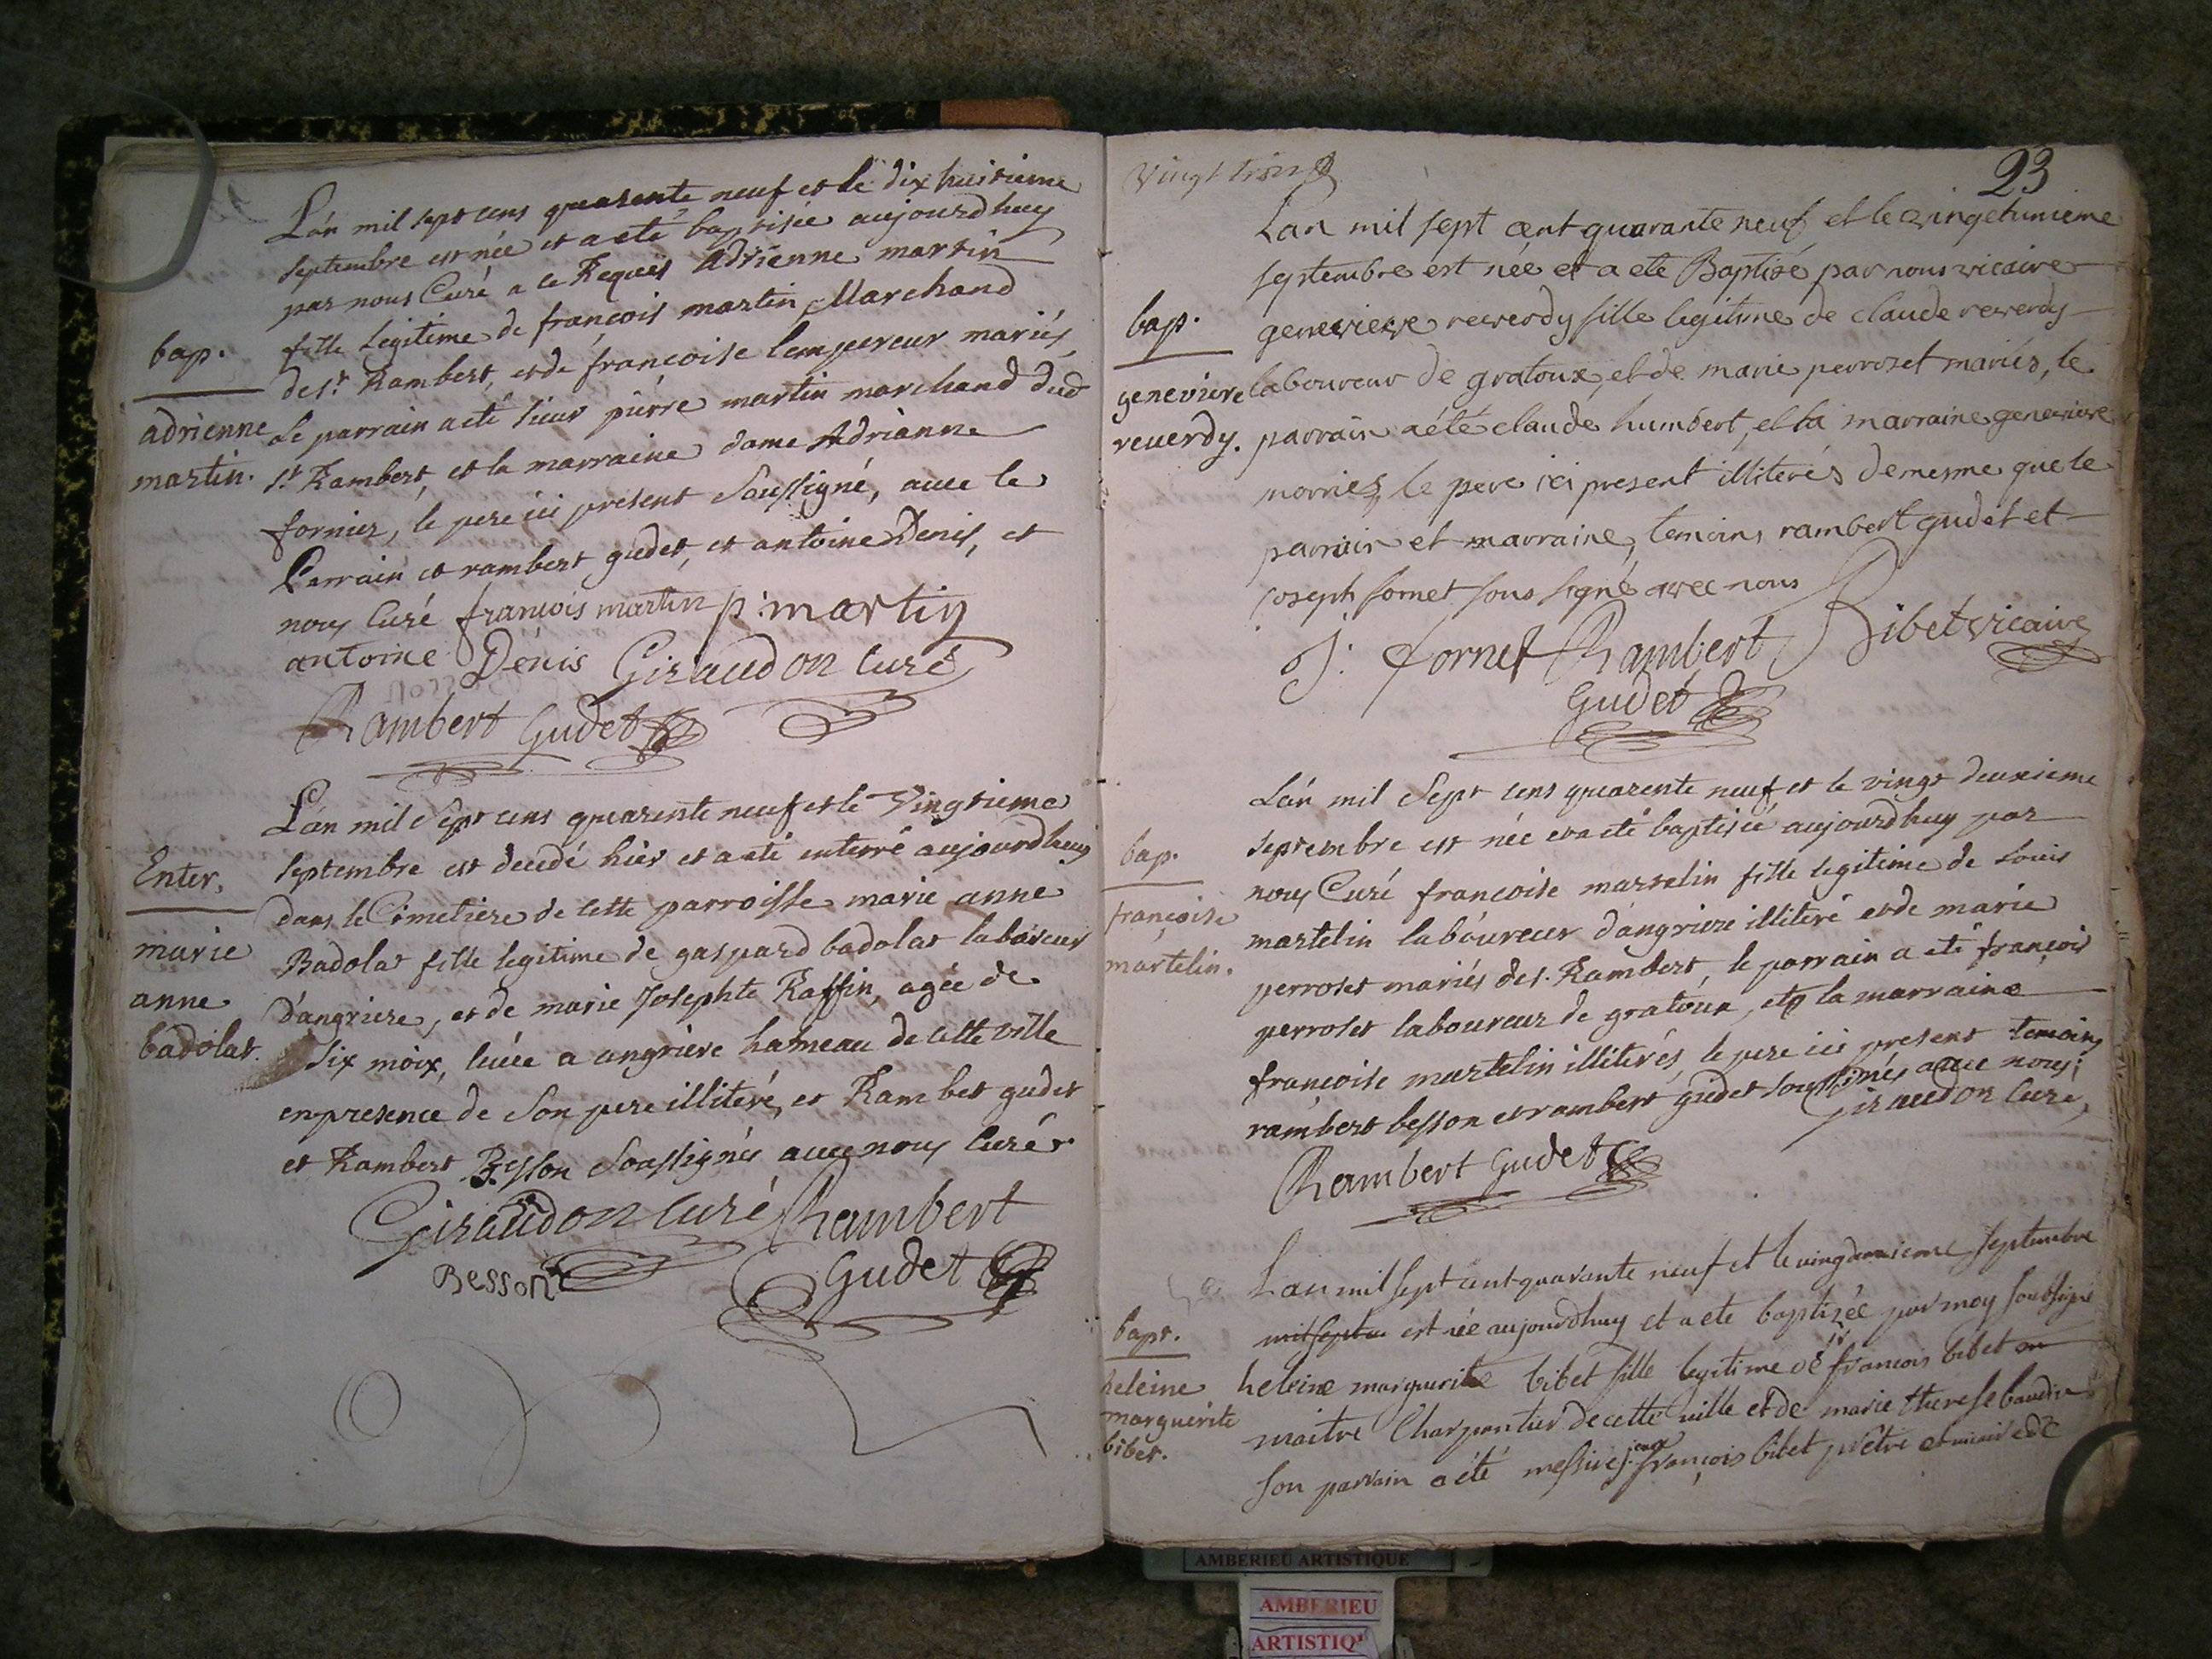 L'án mil sept cens quarente neuf et le dix huitieme
septembre est née et a eté baptisée aujourdhuy
par nous Curé a ce Requis Adrienne martin
fille legitime de françois martin Marchand
de st. Rambert, et de francoise lempereur mariés
Le parrain a eté sieur piérre martin marchand dud
st. Rambert, et la marraine dame Adrianne
fornier, le pere ici present Soussigné, avec le
Parrain et rambert gudet, et antoine Denis, et
nous Curé françois martin p: martin
antoine Denis Giraudon Curé
Rambert Gudet
bap.
adrienne
martin.
L'án mil Sept cens quarente neuf et le Vingtieme
septembre est decedé hiér et a eté enterré aujourdhuy
dans le Cimetiere de cette parroisse marie anne
Badolat fille legitime de gaspard badolat laboureur
d'angriere, et de marie Josephte Raffin, agée de
Six moix, a angriére hameau de cette ville
en presence de Son pere illiteré, et Rambet gudet
et Rambert Besson Soussignés avec nous Curé
Giraudon Curé Rambert
Besson Gudet
Enter.
marie
anne
badolat.
Vingt trois
23
Lan mil sept cent quarante neuf et le vingetunieme
septembre est née et a eté Baptisé par nous vicaire
genevieve reverdy fille legitime de claude reverdy
laboureur de gratoux, et de marie perroset mariés, le
parrain a été claude humbert, et la marraine genevieve
morriez, le pere ici present illiterés demesme que le
parrain et marraine, temoins rambert gudet et
joseph fornet sous signé avec nous
J: fornet Rambert Bibet vicaire
Gudet
bap.
genevieve
reverdy.
L'án mil Sept cens quarente neuf et le vingt deuxieme
septembre est née et a eté baptisée aujourdhuy par
nous Curé francoise martelin fille legitime de Louis
martelin laboureur d'angriere illiteré et de marie
perroset mariés de s. Rambert, le parrain a eté françois
perroset laboureur de gratoux, et la marraine
françoise martelin illiterés, le pere ici present temoins
rambert besson et rambert gudet soussignés avec nous;
Giraudon Curé,
Rambert Gudet
bap.
françoise
martelin.
Lan mil sept cent quarante neuf et le septembre
est née aujourdhuy et a ete baptizée par moy soussigné
heleine marguerite bibet fille legitime de sr francois bibet
maitre Charpentier de cette ville et de marie therese baudin
son parrain a été messire jean françois bibet prêtre et
bapt.
heleine
marguérite
bibet.
AMBERIEU ARTISTIQUE
AMBERIEU
ARTISTIQ